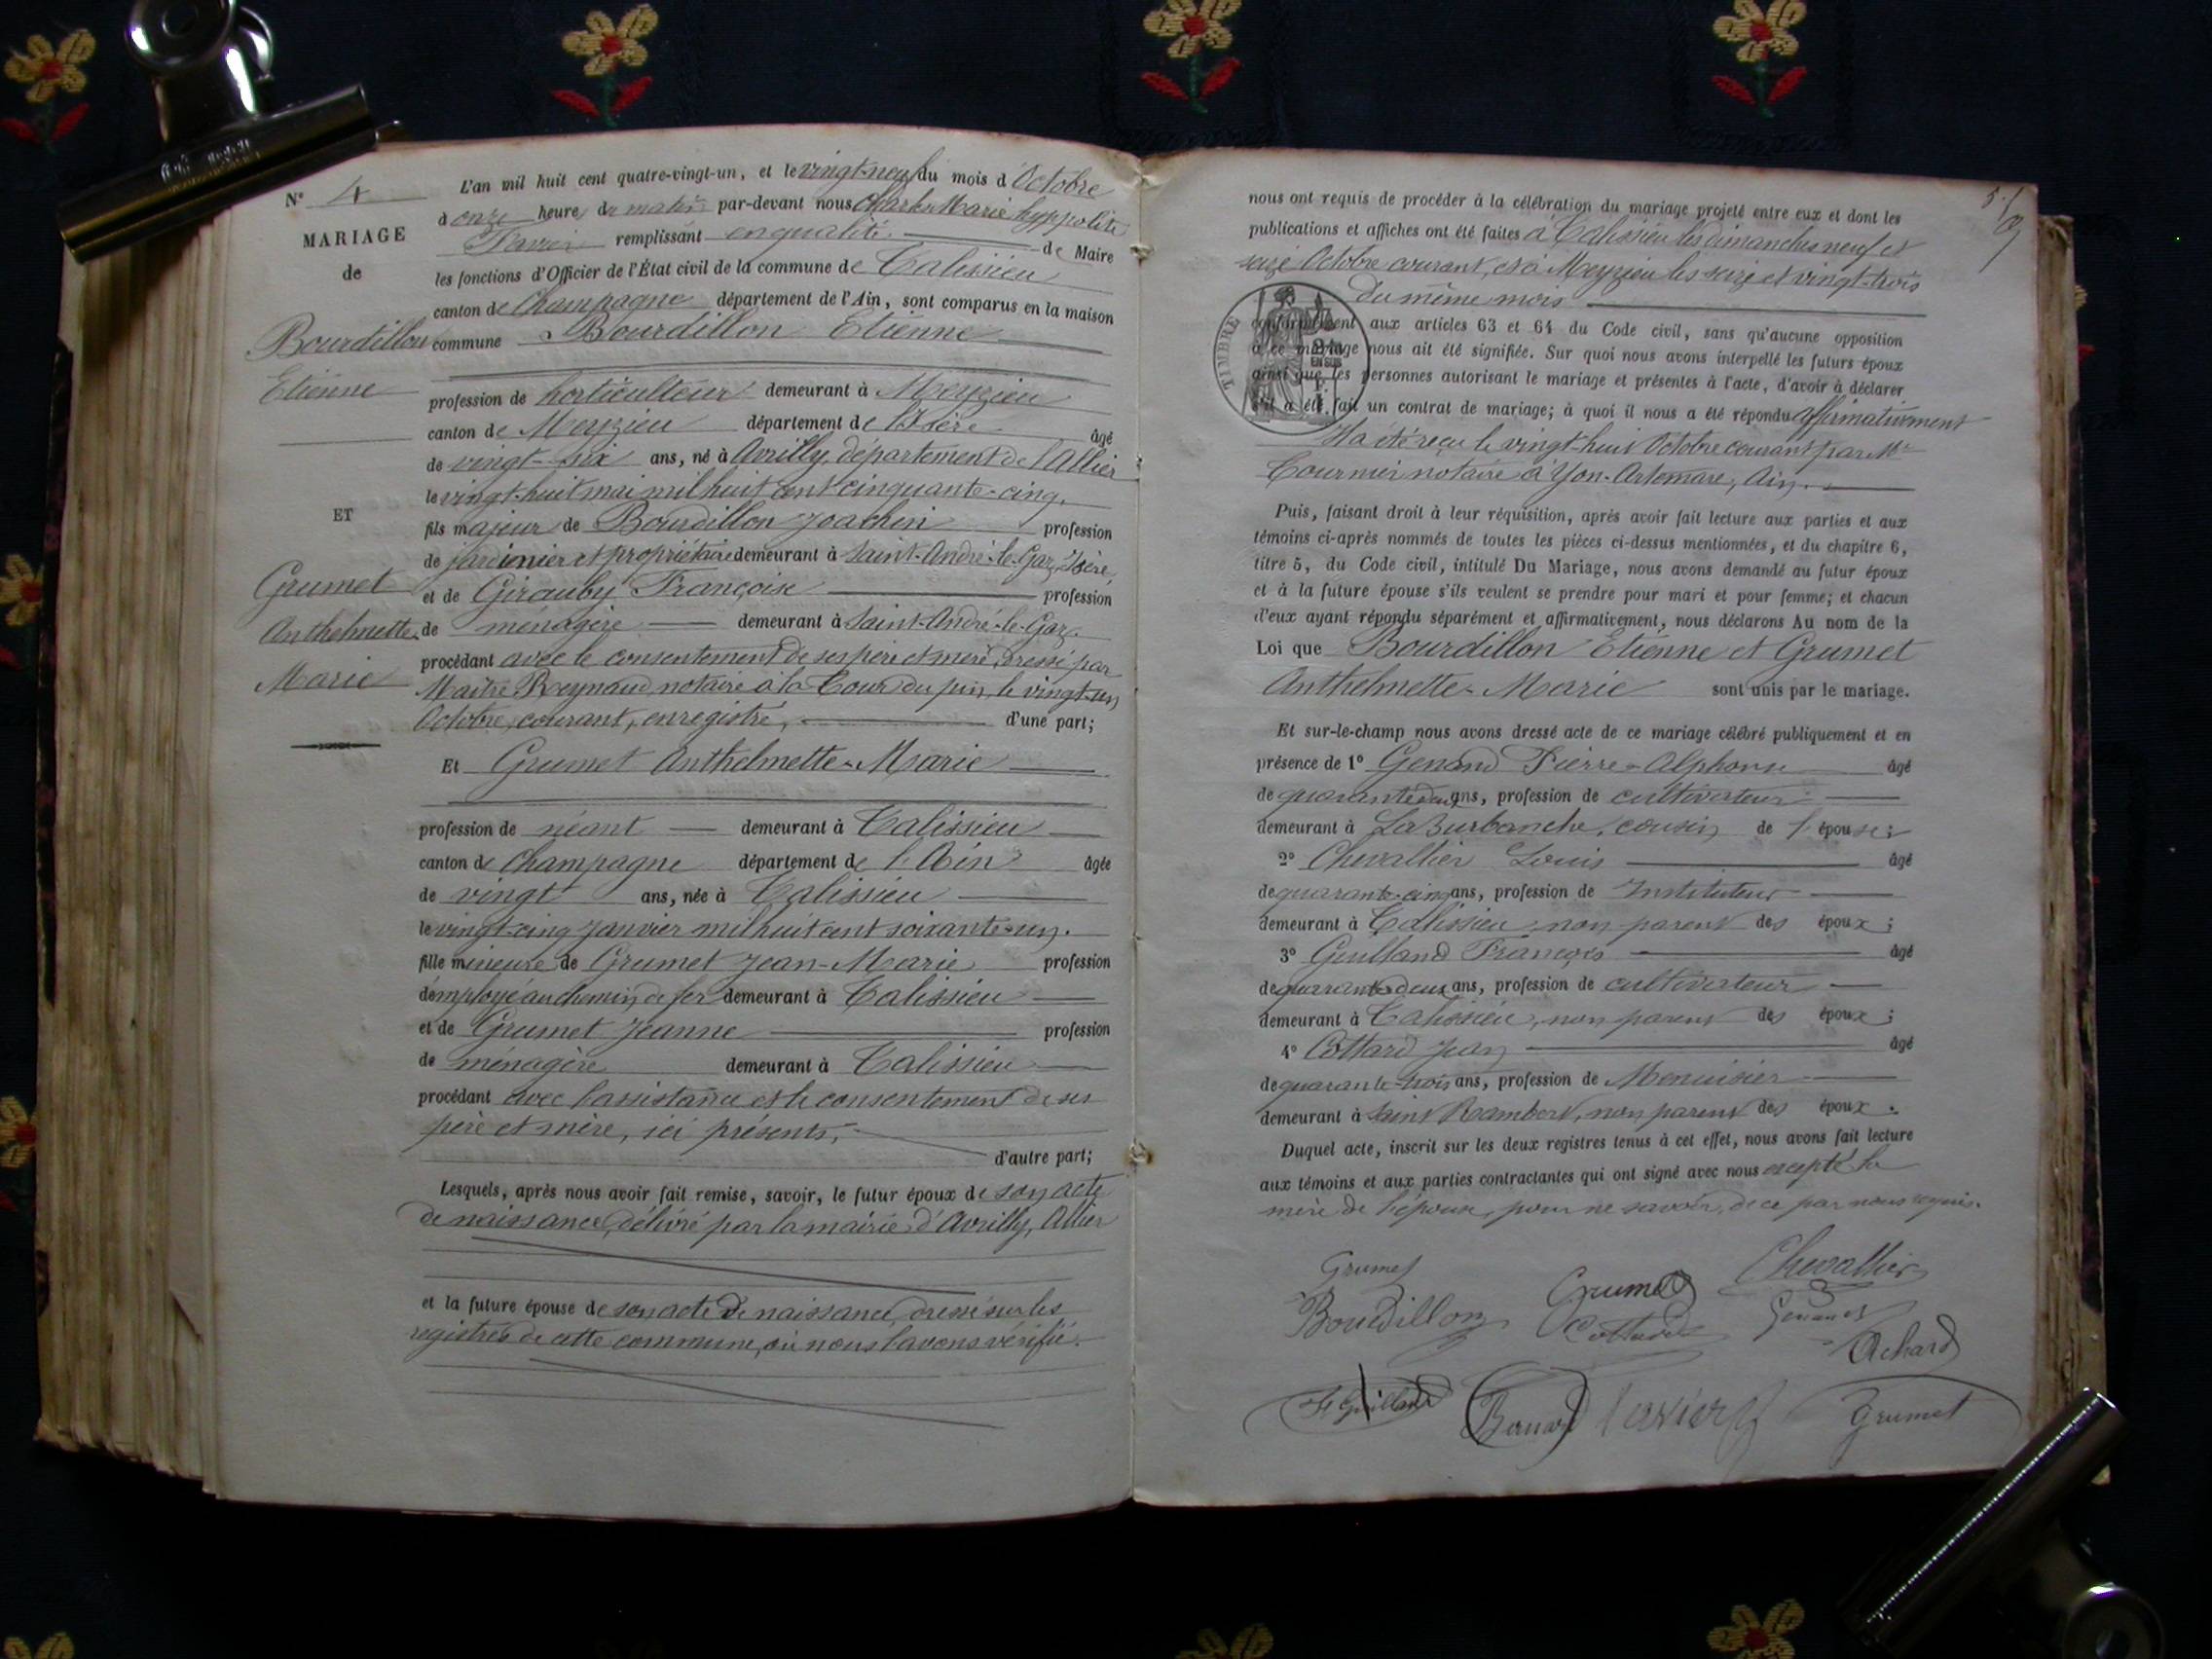 N° 4
MARIAGE
de
Bourdillon
Etienne
ET
Grumet
Anthelmette
Marie
L'an mil huit cent quatre-vingt-un, et le vingt-neuf du mois d'Octobre
à onze heure du matin par-devant nous Charles Marie hyppolite
remplissant en qualité de Maire
les fonctions d'Officier de l'État civil de la commune de Talissieu
canton de Champagne département de l'Ain, sont comparus en la maison
commune Bourdillon Etienne
profession de horticulteur demeurant à Meyzieu
canton de Meyzieu département de l'Isère âgé
de vingt-six ans, né à Avrilly, département de l'Allier
le vingt-huit mai mil huit cent cinquante-cinq.
fils majeur de Bourdillon Joachin profession
de jardinier et propriétaire demeurant à Saint-André-le-Gaz, Isère,
et de Girauby Françoise profession
de ménagère demeurant à Saint-André-le-Gaz.
procédant avec le consentement de ses père et mère, dressé par
Maître Reynaud, notaire à la Tour du pin, le vingt-un
Octobre, courant, enregistré, d'une part;
Et Grumet Anthelmette-Marie
profession de néant demeurant à Talissieu
canton de Champagne département de l'Ain âgée
de vingt ans, née à Talissieu
le vingt-cinq Janvier mil huit cent soixante-un.
fille mineure de Grumet Jean-Marie profession
d'employé au chemin de fer demeurant à Talissieu
et de Grumet Jeanne profession
de ménagère demeurant à Talissieu
procédant avec l'assistance et le consentement de ses
père et mère, ici présents, 
d'autre part;
Lesquels, après nous avoir fait remise, savoir, le futur époux de son acte
de naissance, délivré par la mairie d'Avrilly, Allier
et la future épouse de son acte de naissance, dressé sur les
registres de cette commune, où nous l'avons vérifié.
nous ont requis de procéder à la célébration du mariage projeté entre eux et dont les
publications et affiches ont été faites à Talissieu les dimanches neuf et
seize Octobre courant, et à Meyzieu les seize et vingt-trois
du même mois
TIMBRE
conformément aux articles 63 et 64 du Code civil, sans qu'aucune opposition
à ce mariage nous ait été signifiée. Sur quoi nous avons interpellé les futurs époux
ainsi que les personnes autorisant le mariage et présentes à l'acte, d'avoir à déclarer
s'il a été fait un contrat de mariage; à quoi il nous a été répondu affirmativement
Il a été reçu le vingt-huit Octobre courant par Me
Tournier notaire à Yon-Artemare, Ain.
Puis, faisant droit à leur réquisition, après avoir fait lecture aux parties et aux
témoins ci-après nommés de toutes les pièces ci-dessus mentionnées, et du chapitre 6,
titre 5, du Code civil, intitulé Du Mariage, nous avons demandé au futur époux
et à la future épouse s'ils veulent se prendre pour mari et pour femme; et chacun
d'eux ayant répondu séparément et affirmativement, nous déclarons Au nom de la
Loi que Bourdillon Etienne et Grumet
Anthelmette-Marie sont unis par le mariage.
Et sur-le-champ nous avons dressé acte de ce mariage célébré publiquement et en
présence de 1° Genand Pierre-Alphonse âgé
de quarante-deux ans, profession de cultivateur
demeurant à La Burbanche, cousin de l'épouse;
2° Chevallier Louis âgé
de quarante-cinq ans, profession de Instituteur
demeurant à Talissieu, non parent des époux;
3° Guilland François âgé
de quarante-deux ans, profession de cultivateur
demeurant à Talissieu, non parent des époux;
4° Cottard Jean âgé
de quarante-trois ans, profession de Menuisier
demeurant à Saint Rambert, non parent des époux.
Duquel acte, inscrit sur les deux registres tenus à cet effet, nous avons fait lecture
aux témoins et aux parties contractantes qui ont signé avec nous excepté la
mère de l'épouse, pour ne savoir, de ce par nous requis.
Grumet
Chevallier
Grumet
Bourdillon
Cottard
Genand
Achard
Guilland
Grumet